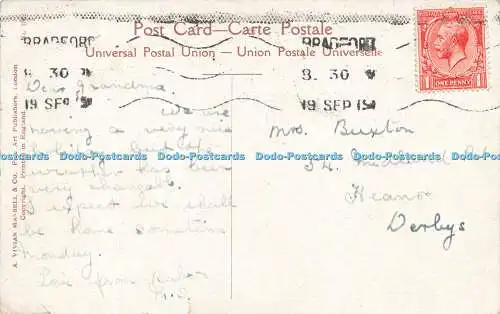 Post Card—Carte Postale
Universal Postal Union — Union Postale Universelle
BRADFORD
8. 30
19 SEP 19
BRADFORD
8. 30
19 SEP 19
ONE PENNY
A. VIVIAN MANSELL & CO., Fine Art Publishers, London
Copyright. Printed in England
Dear Grandma
We are
having a very nice
holiday but the
weather has been
very changeable
I expect we shall
be home sometime
Monday.
Love from
Mrs Buxton
34
Heanor
Derbys
Dodo-Postcards Dodo-Postcards Dodo-Postcards Dodo-Postcards